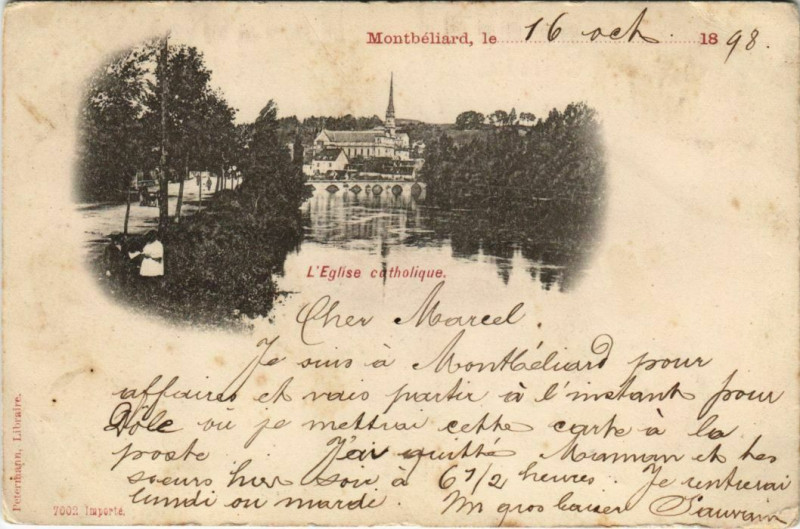 Montbéliard, le 16 oct 1898.
L'Eglise catholique.
Cher Marcel.
Je suis à Montbéliard pour
affaires et vais partir à l'instant pour
Dôle où je mettrai cette carte à la
poste. J'ai quitté Maman et tes
soeurs hier soir à 6 1/2 heures. Je rentrerai
lundi ou mardi. Un gros baiser
Petermann, Libraire.
7002 Importé.